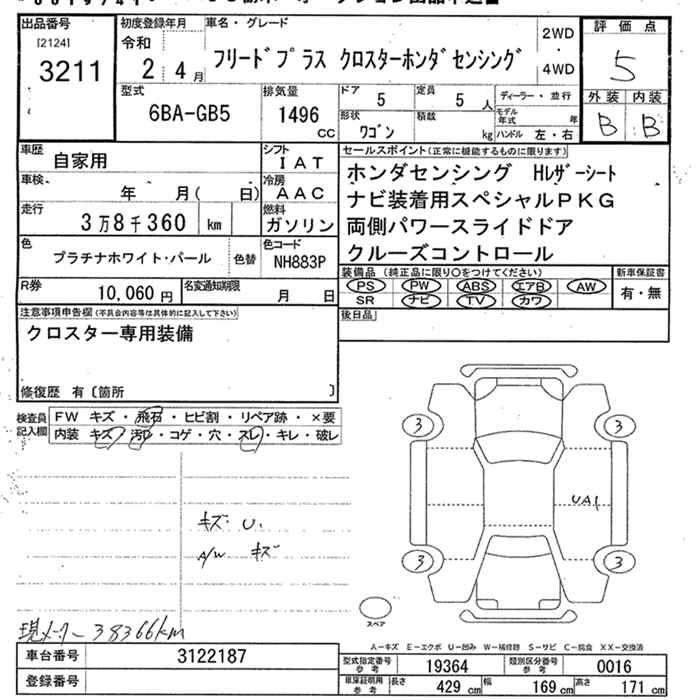 出品番号
[2124]
3211
初度登録年月
令和
2 4 月
車名・グレード
フリードプラス クロスターホンダセンシング
2WD
・
4WD
評価点
5
外装 内装
B B
型式
6BA-GB5
排気量
1496
CC
ドア
5
定員
5 人
ディーラー・並行
形状
ワゴン
積載
kg
モデル年式
年
ハンドル 左・右
車歴
自家用
シフト
IAT
車検
年 月( 日)
冷房
AAC
走行
3万8千360 km
燃料
ガソリン
色
プラチナホワイト・パール
色替
色コード
NH883P
R券
10,060 円
名変通知期限
月 日
セールスポイント(正常に機能するものに限ります)
ホンダセンシング Hレザーシート
ナビ装着用スペシャルPKG
両側パワースライドドア
クルーズコントロール
装備品 (純正品に限り○をつけてください)
PS PW ABS エアB AW
SR ナビ TV カワ
新車保証書
有・無
後日品
注意事項申告欄(不具合内容等は具体的に記入して下さい)
クロスター専用装備
修復歴 有〔箇所 〕
検査員記入欄
FW キズ・飛石・ヒビ割・リペア跡・×要
内装 キズ・汚レ・コゲ・穴・スレ・キレ・破レ
キズ U.
A/W キズ
3 3
UA1
3 3
スペア
現メーター 38366km
A－キズ E－エクボ U－凹み W－補修跡 S－サビ C－腐食 XX－交換済
車台番号
3122187
登録番号
型式指定番号 参考
19364
類別区分番号 参考
0016
車庫証明用 参考
長さ 429 cm
幅 169 cm
高さ 171 cm